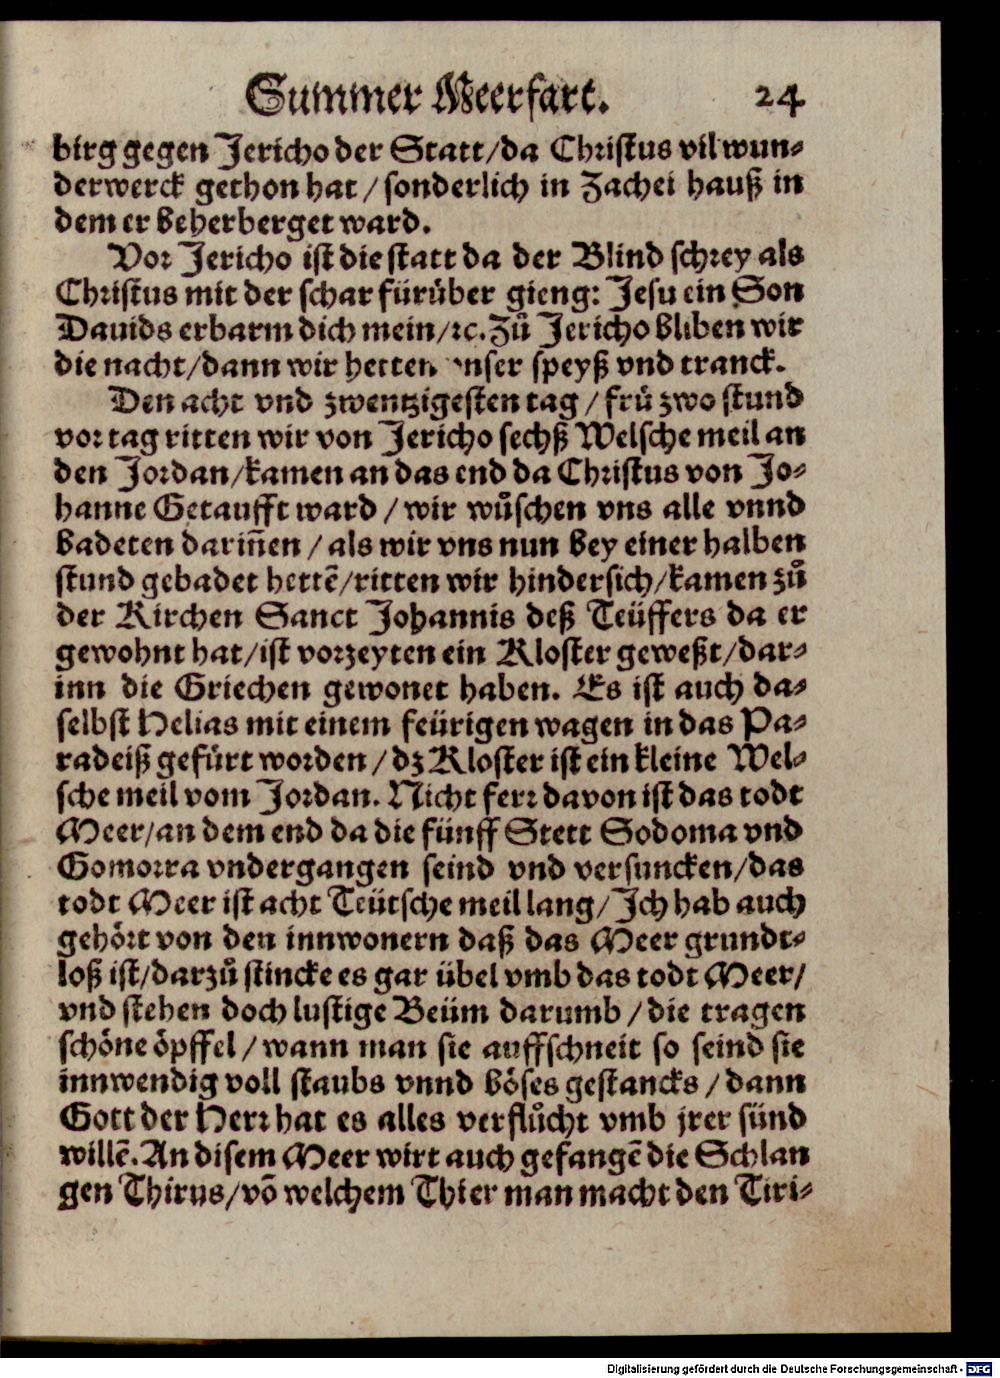 Summer Meerfart. 24
birg gegen Jericho der Statt/da Christus vil wun-
derwerck gethon hat/sonderlich in Zachei hauß in
dem er beherberget ward.
Vor Jericho ist die statt da der Blind schrey als
Christus mit der schar fürüber gieng: Jesu ein Son
Dauids erbarm dich mein/ꝛc. Zů Jericho bliben wir
die nacht/dann wir hetten vnser speyß vnd tranck.
Den acht vnd zwentzigesten tag/frů zwo stund
vor tag ritten wir von Jericho sechß Welsche meil an
den Jordan/kamen an das end da Christus von Jo-
hanne Getaufft ward/wir wůschen vns alle vnnd
badeten dariñen/als wir vns nun bey einer halben
stund gebadet hettē/ritten wir hindersich/kamen zů
der Kirchen Sanct Johannis deß Teüffers da er
gewohnt hat/ist vorzeyten ein Kloster geweßt/dar-
inn die Griechen gewonet haben. Es ist auch da-
selbst Helias mit einem feürigen wagen in das Pa-
radeiß gefürt worden/dz Kloster ist ein kleine Wel-
sche meil vom Jordan. Nicht ferr davon ist das todt
Meer/an dem end da die fünff Stett Sodoma vnd
Gomorra vndergangen seind vnd versuncken/das
todt Meer ist acht Teütsche meil lang/Ich hab auch
gehört von den innwonern daß das Meer grundt-
loß ist/darzů stincke es gar übel vmb das todt Meer/
vnd stehen doch lustige Beüm darumb/die tragen
schöne öpffel/wann man sie auffschneit so seind sie
innwendig voll staubs vnnd böses gestancks/dann
Gott der Herr hat es alles verflůcht vmb jrer sünd
willē. An disem Meer wirt auch gefangē die Schlan
gen Thirus/vō welchem Thier man macht den Tiri-
Digitalisierung gefördert durch die Deutsche Forschungsgemeinschaft - DFG